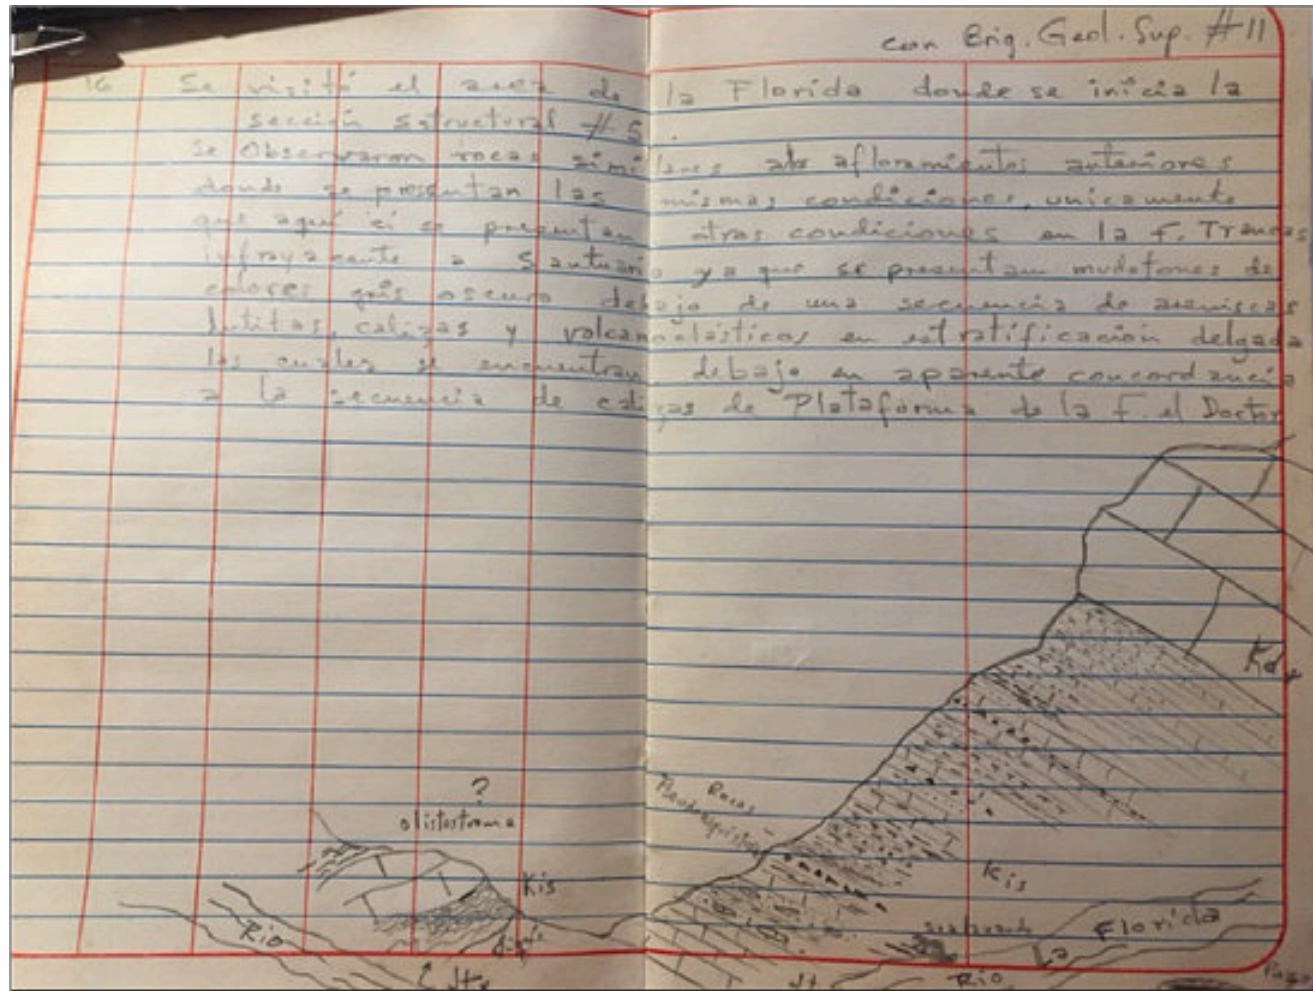 con Brig. Geol. Sup. #11
16 Se visitó el area de la Florida donde se inicia la
sección estructural #5.
Se Observaron rocas similares a los afloramientos anteriores
donde se presentan las mismas condiciones, unicamente
que aquí si se presentan otras condiciones en la F. Trancas
infrayacente a Santuario ya que se presentan mudstones de
colores gris oscuro debajo de una secuencia de areniscas
lutitas, calizas y volcanoclásticos en estratificación delgada
las cuales se encuentran debajo en aparente concordancia
a la secuencia de calizas de Plataforma de la F. el Doctor
?
olistostroma
Rocas
Kis
Kis
Rio
Rio La Florida